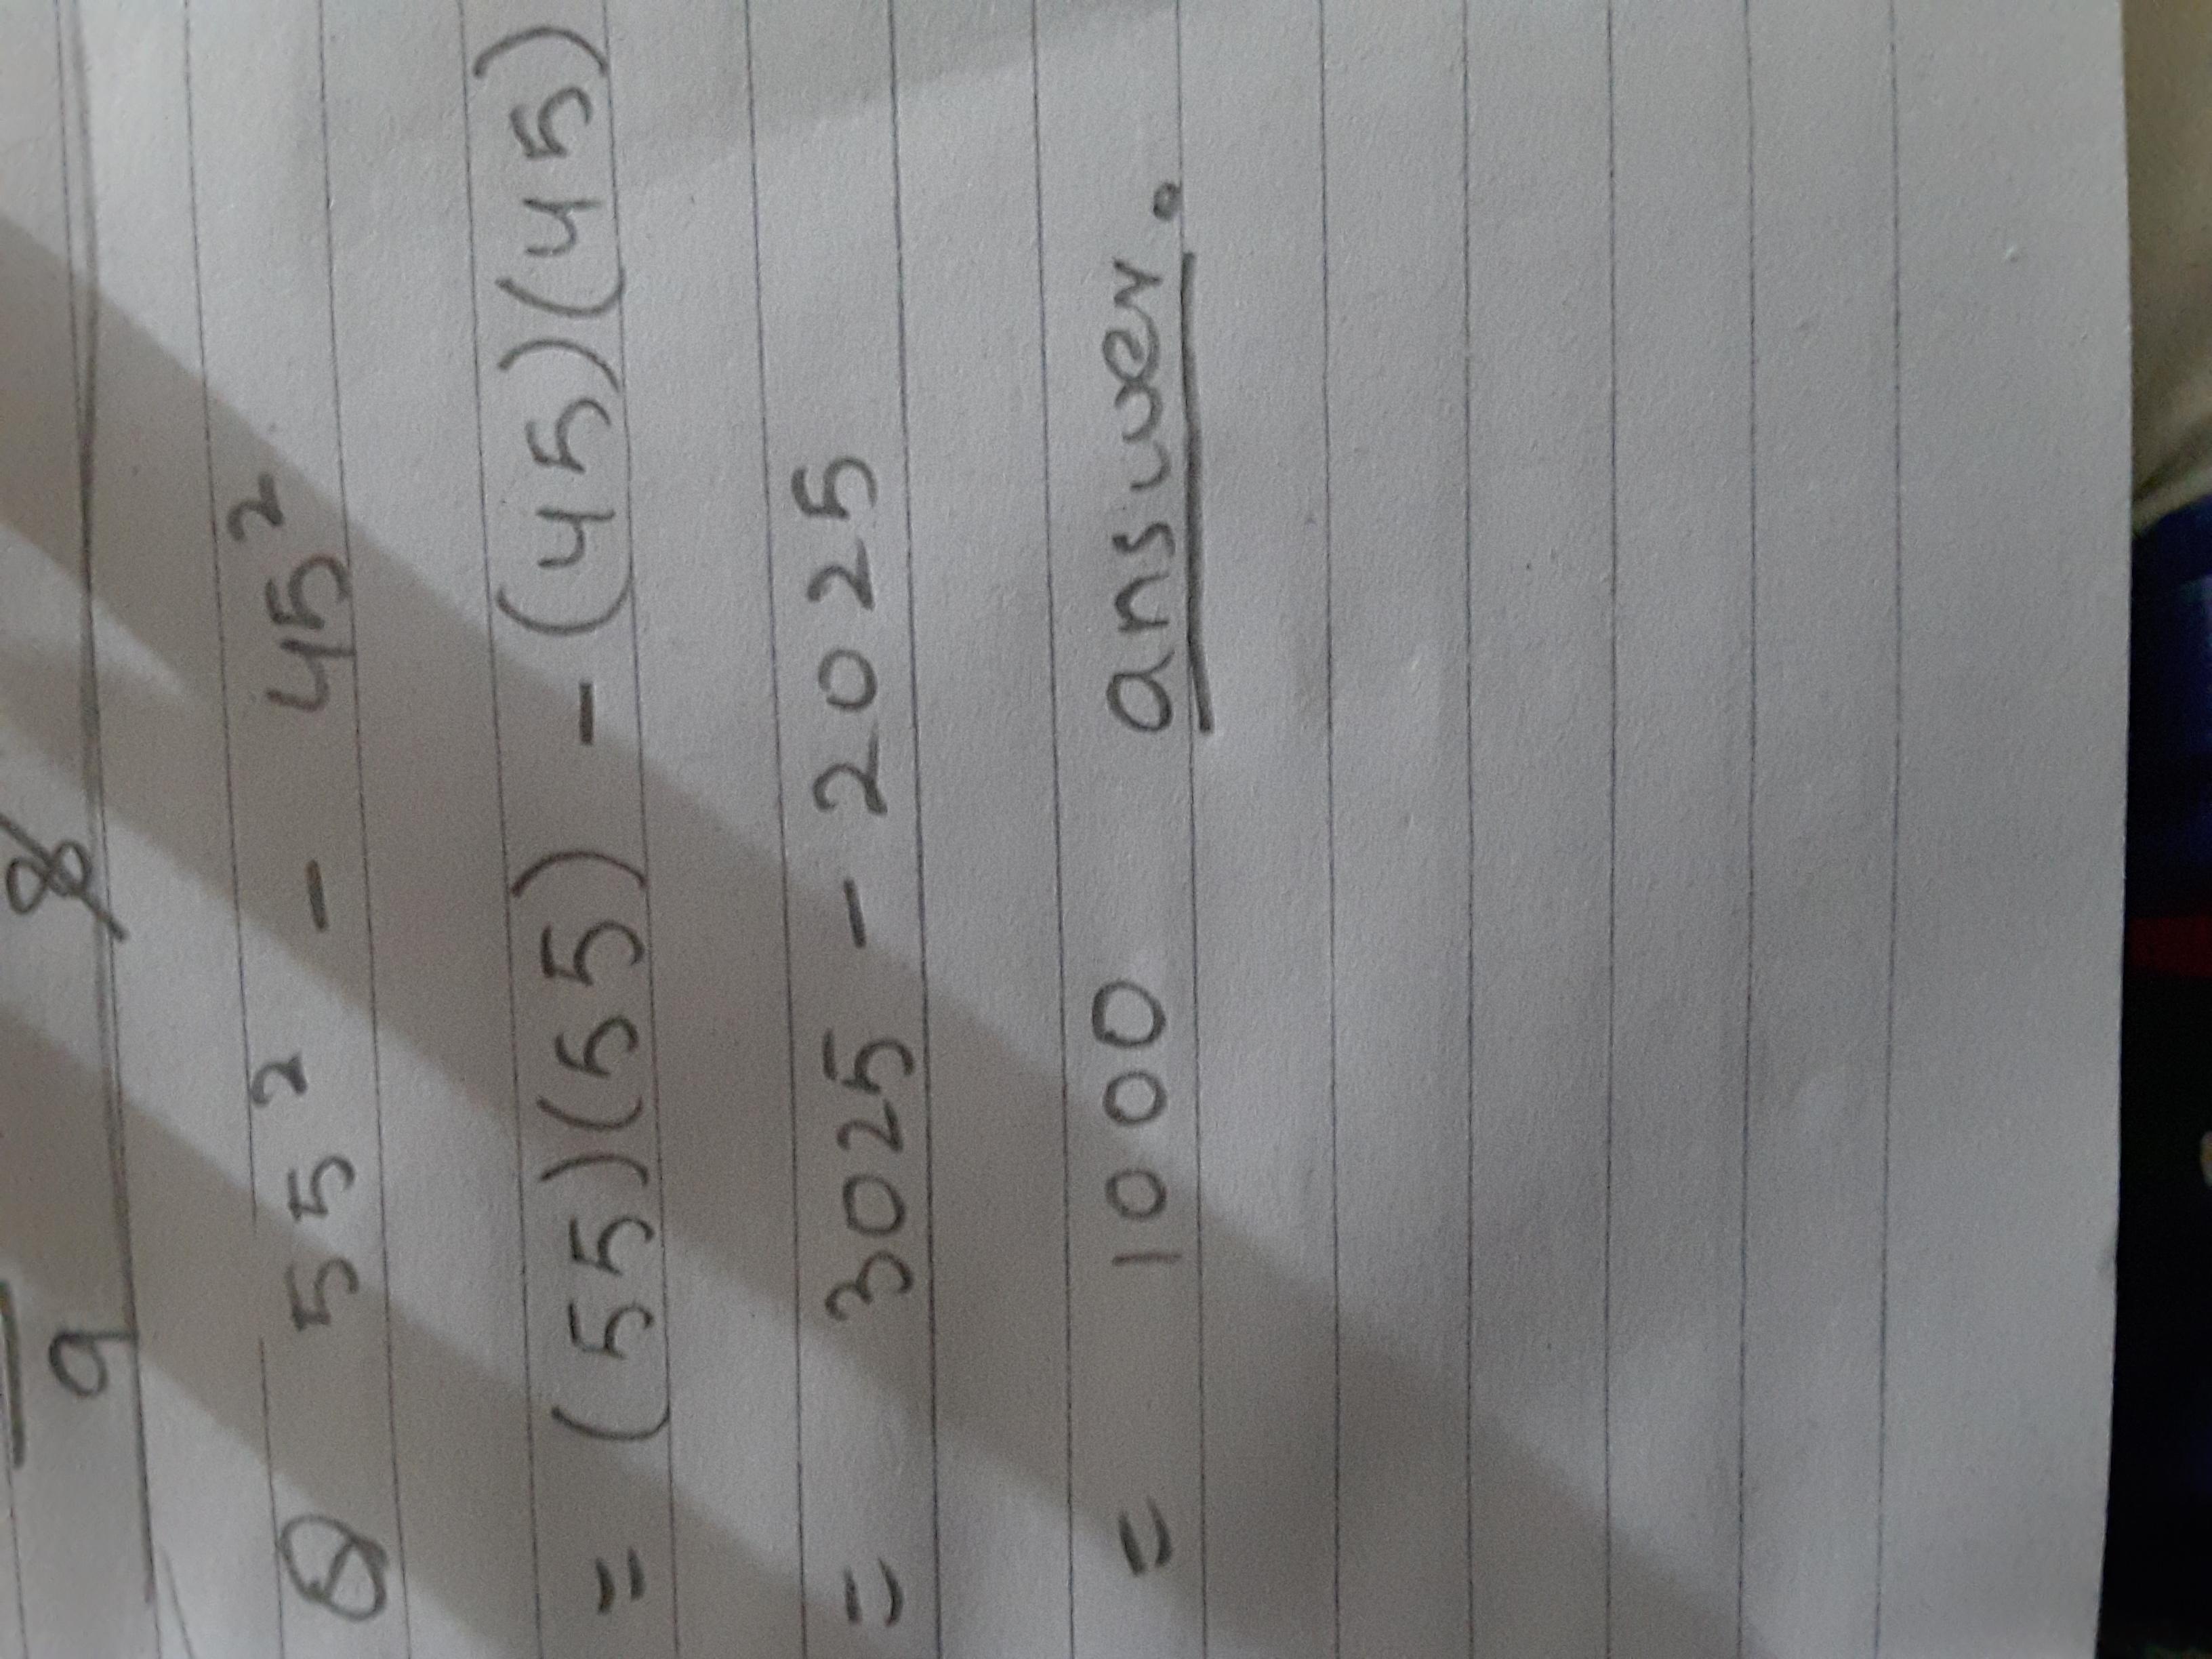 9 8
55² - 45²
= (55)(55) - (45)(45)
= 3025 - 2025
= 1000 answer.